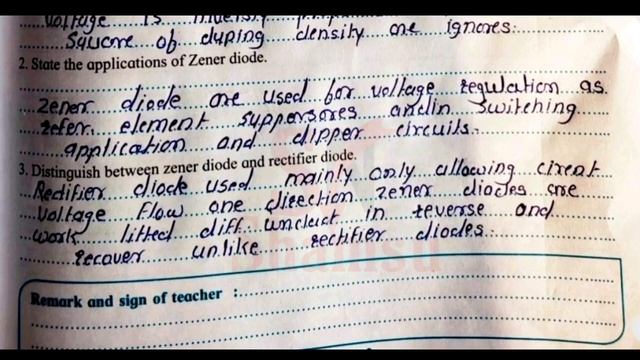 voltage is inversly
Square of duping density are ignores.
2. State the applications of Zener diode.
zener diode are used for voltage regulation as
refer element suppersores andin switching
application and clipper circuits.
3. Distinguish between zener diode and rectifier diode.
Rectifier diode used mainly only allowing cirent
voltage flow one direction zener diodes are
work litted diff unduct in reverse and
recover unlike rectifier diodes.
Shamsu
Remark and sign of teacher :